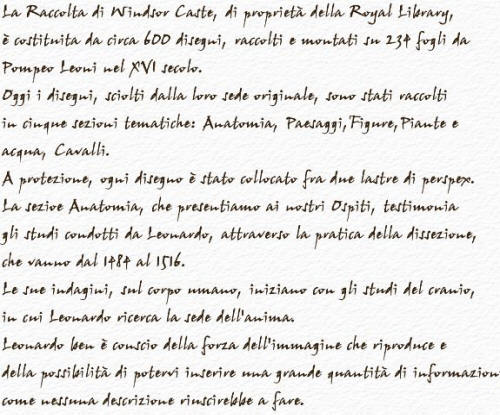 La Raccolta di Windsor Caste, di proprietà della Royal Library,
è costituita da circa 600 disegni, raccolti e montati su 234 fogli da
Pompeo Leoni nel XVI secolo.
Oggi i disegni, sciolti dalla loro sede originale, sono stati raccolti
in cinque sezioni tematiche: Anatomia, Paesaggi, Figure, Piante e
acqua, Cavalli.
A protezione, ogni disegno è stato collocato fra due lastre di perspex.
La sezioe Anatomia, che presentiamo ai nostri Ospiti, testimonia
gli studi condotti da Leonardo, attraverso la pratica della dissezione,
che vanno dal 1484 al 1516.
Le sue indagini, sul corpo umano, iniziano con gli studi del cranio,
in cui Leonardo ricerca la sede dell'anima.
Leonardo ben è conscio della forza dell'immagine che riproduce e
della possibilità di potervi inserire una grande quantità di informazion
come nessuna descrizione riuscirebbe a fare.